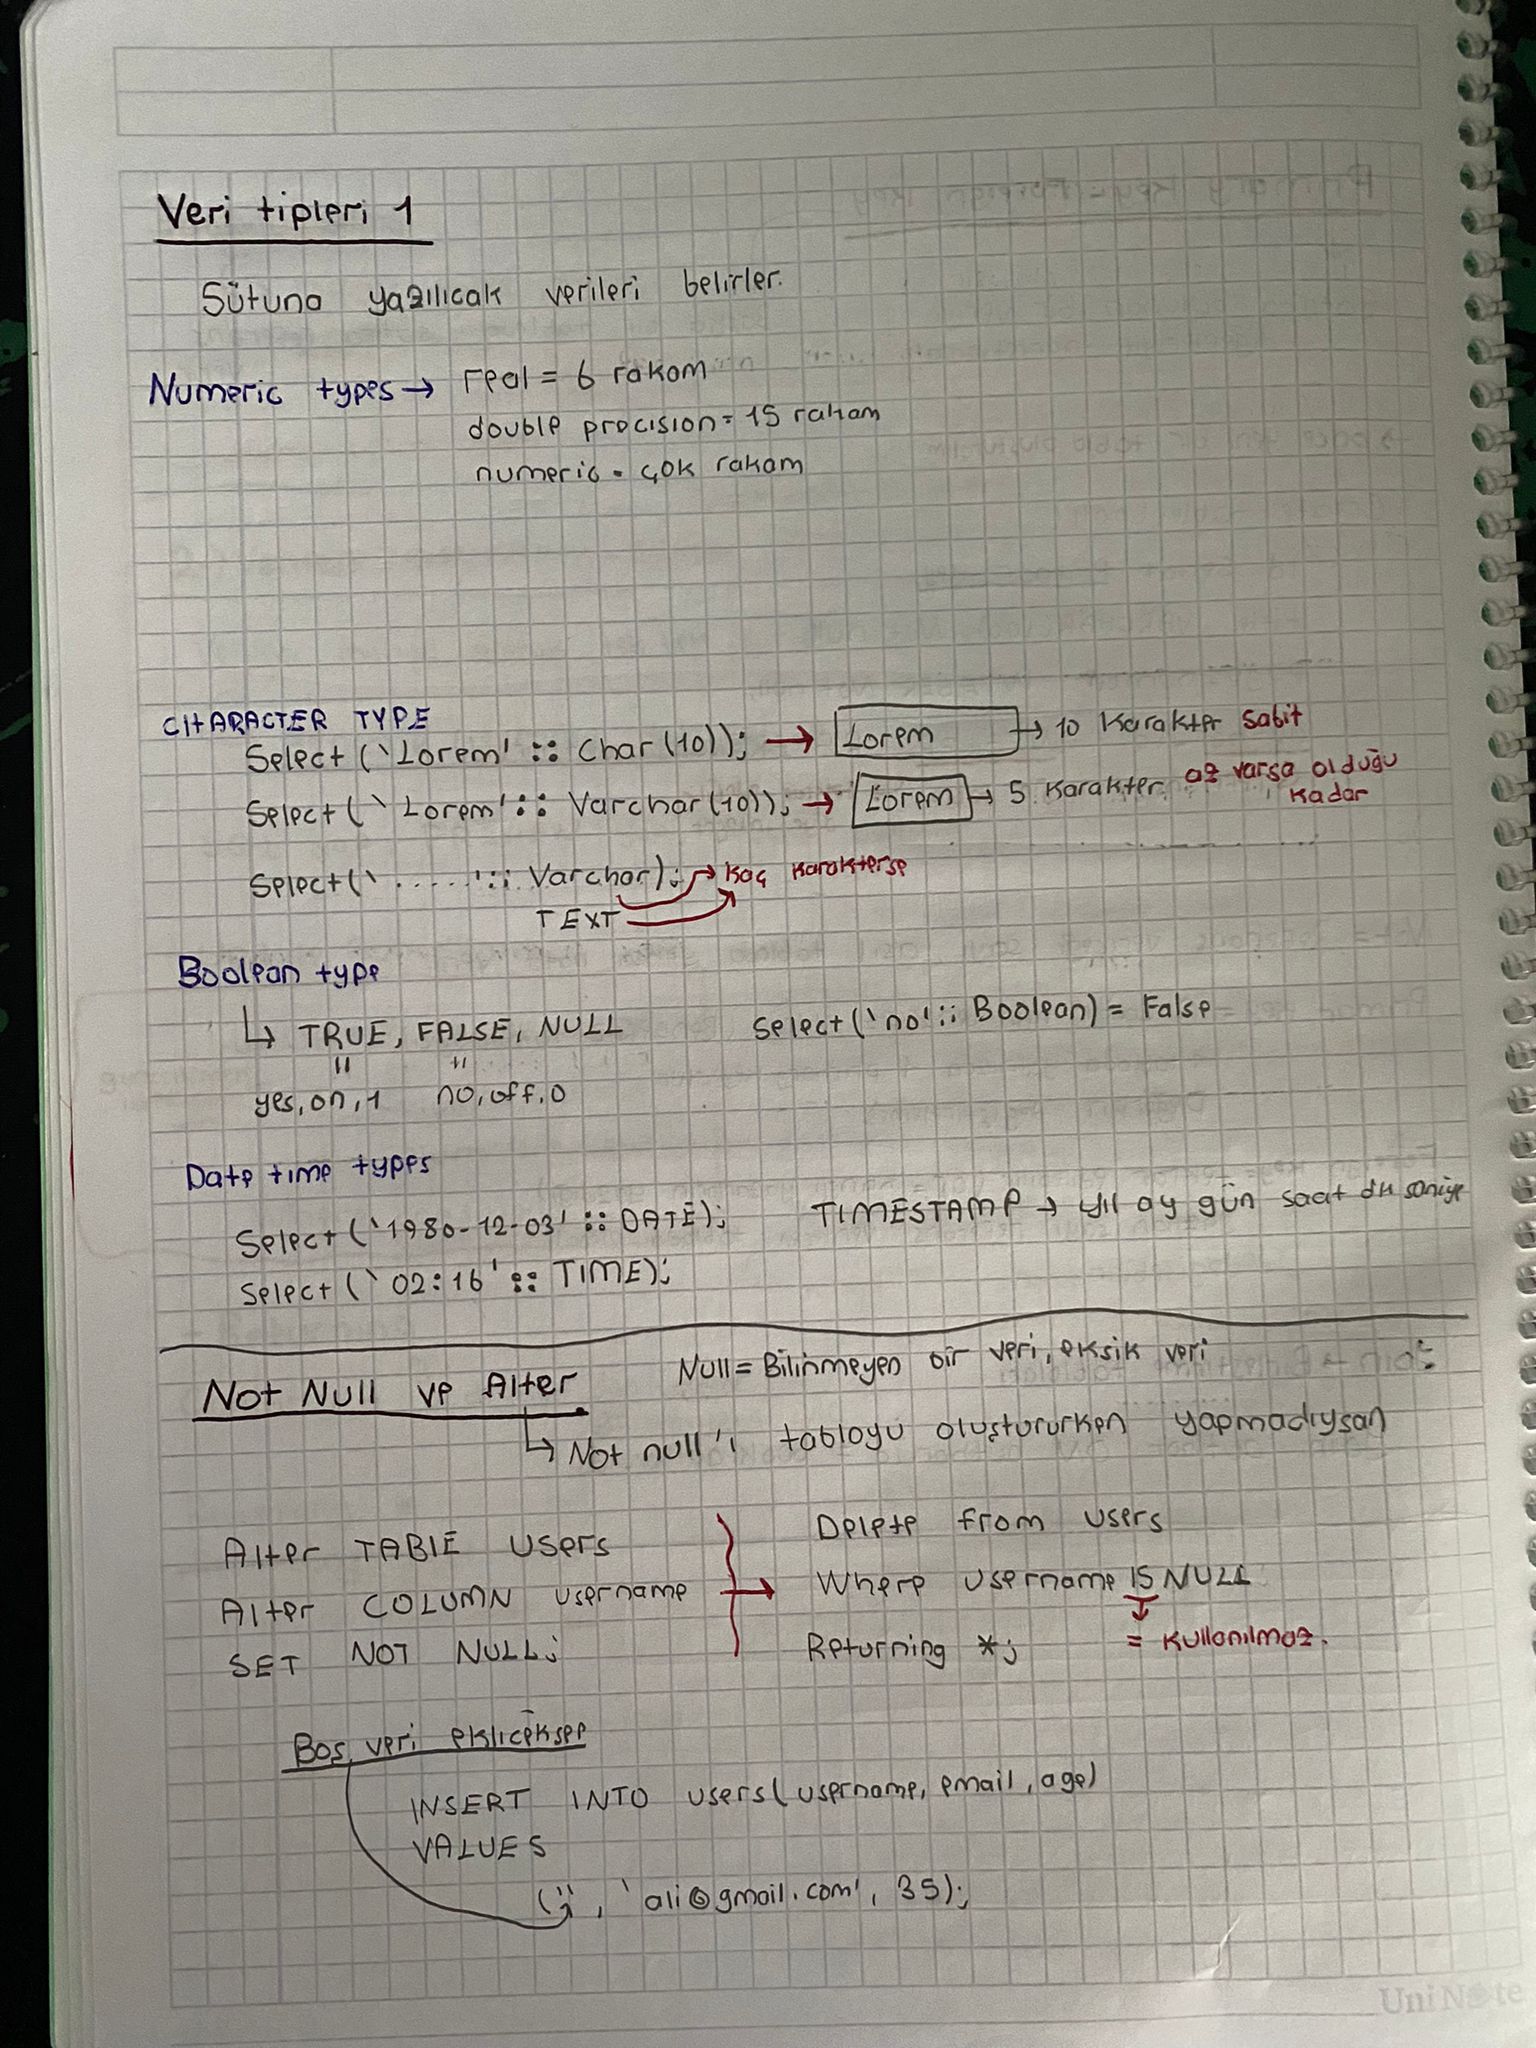 Veri tipleri 1
Sütuna yazılıcak verileri belirler.
Numeric types → real = 6 rakam
double precision = 15 rakam
numeric = çok rakam
CHARACTER TYPE
Select ('Lorem' :: Char(10)); → Lorem → 10 Karakter Sabit
Select ('Lorem' :: Varchar(10)); → Lorem → 5 Karakter az varsa olduğu
kadar
Select ('.....' :: Varchar); → kaç karakterse
TEXT
Boolean type
↳ TRUE, FALSE, NULL Select ('no' :: Boolean) = False
= =
yes, on, 1 no, off, 0
Date time types
Select ('1980-12-03' :: DATE); TIMESTAMP → yıl ay gün saat dk saniye
Select ('02:16' :: TIME);
Null = Bilinmeyen bir veri, eksik veri
Not Null ve Alter
↳ Not null'ı tabloyu oluştururken yapmadıysan
Alter TABLE users
Alter COLUMN username
SET NOT NULL;
→
Delete from users
Where username IS NULL
Returning *; = kullanılmaz.
Boş veri eklıcéksen
INSERT INTO users(username, email, age)
VALUES
('', 'ali@gmail.com', 35);
UniNote